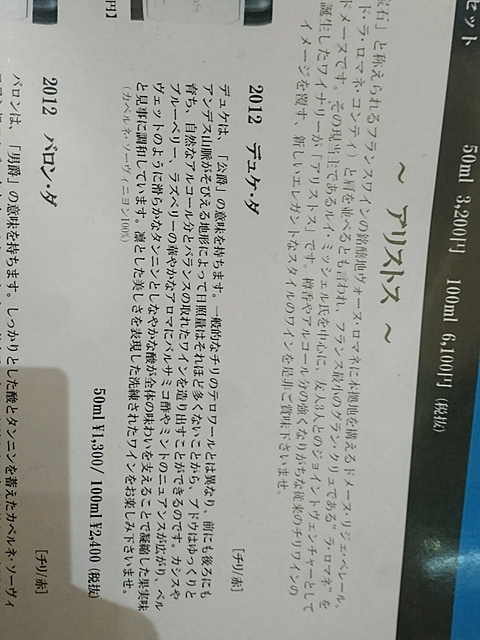 セット
50ml 3,200円 100ml 6,100円 (税抜)
～ アリストス ～
石」と称えられるフランスワインの銘醸地ヴォーヌ・ロマネに本拠地を構えるドメーヌ・リジェ・ベレール。
ド・ラ・ロマネ・コンティ）と肩を並べるとも言われ、フランス最小のグラン・クリュである“ラ・ロマネ”を
ドメーヌです。その現当主であるルイ・ミッシェル氏を中心に、友人3人とのジョイントヴェンチャーとして
誕生したワイナリーが「アリストス」です。樽香やアルコール分の強くなりがちな従来のチリワインの
イメージを覆す、新しいエレガントなスタイルのワインを是非ご賞味下さいませ。
2012 デュケ・ダ
[チリ/赤]
デュケは、「公爵」の意味を持ちます。一般的なチリのテロワールとは異なり、前にも後ろにも
アンデス山脈がそびえる地形によって日照量はそれほど多くないことから、ブドウはゆっくりと
育ち、自然なアルコール分とバランスの取れたワインを造り出すことができるのです。カシスや
ブルーベリー、ラズベリーの華やかなアロマにバルサミコ酢やミントのニュアンスが広がり、ベル
ヴェットのように滑らかなタンニンとしなやかな酸が全体の味わいを支えることで凝縮した果実味
と見事に調和しています。凛とした美しさを表現した洗練されたワインをお楽しみ下さいませ。
(カベルネ・ソーヴィニヨン100%)
50ml ¥1,300/ 100ml ¥2,400 (税抜)
円】
2012 バロン・ダ
[チリ/赤]
バロンは、「男爵」の意味を持ちます。しっかりとした酸とタンニンを蓄えたカベルネ・ソーヴィ